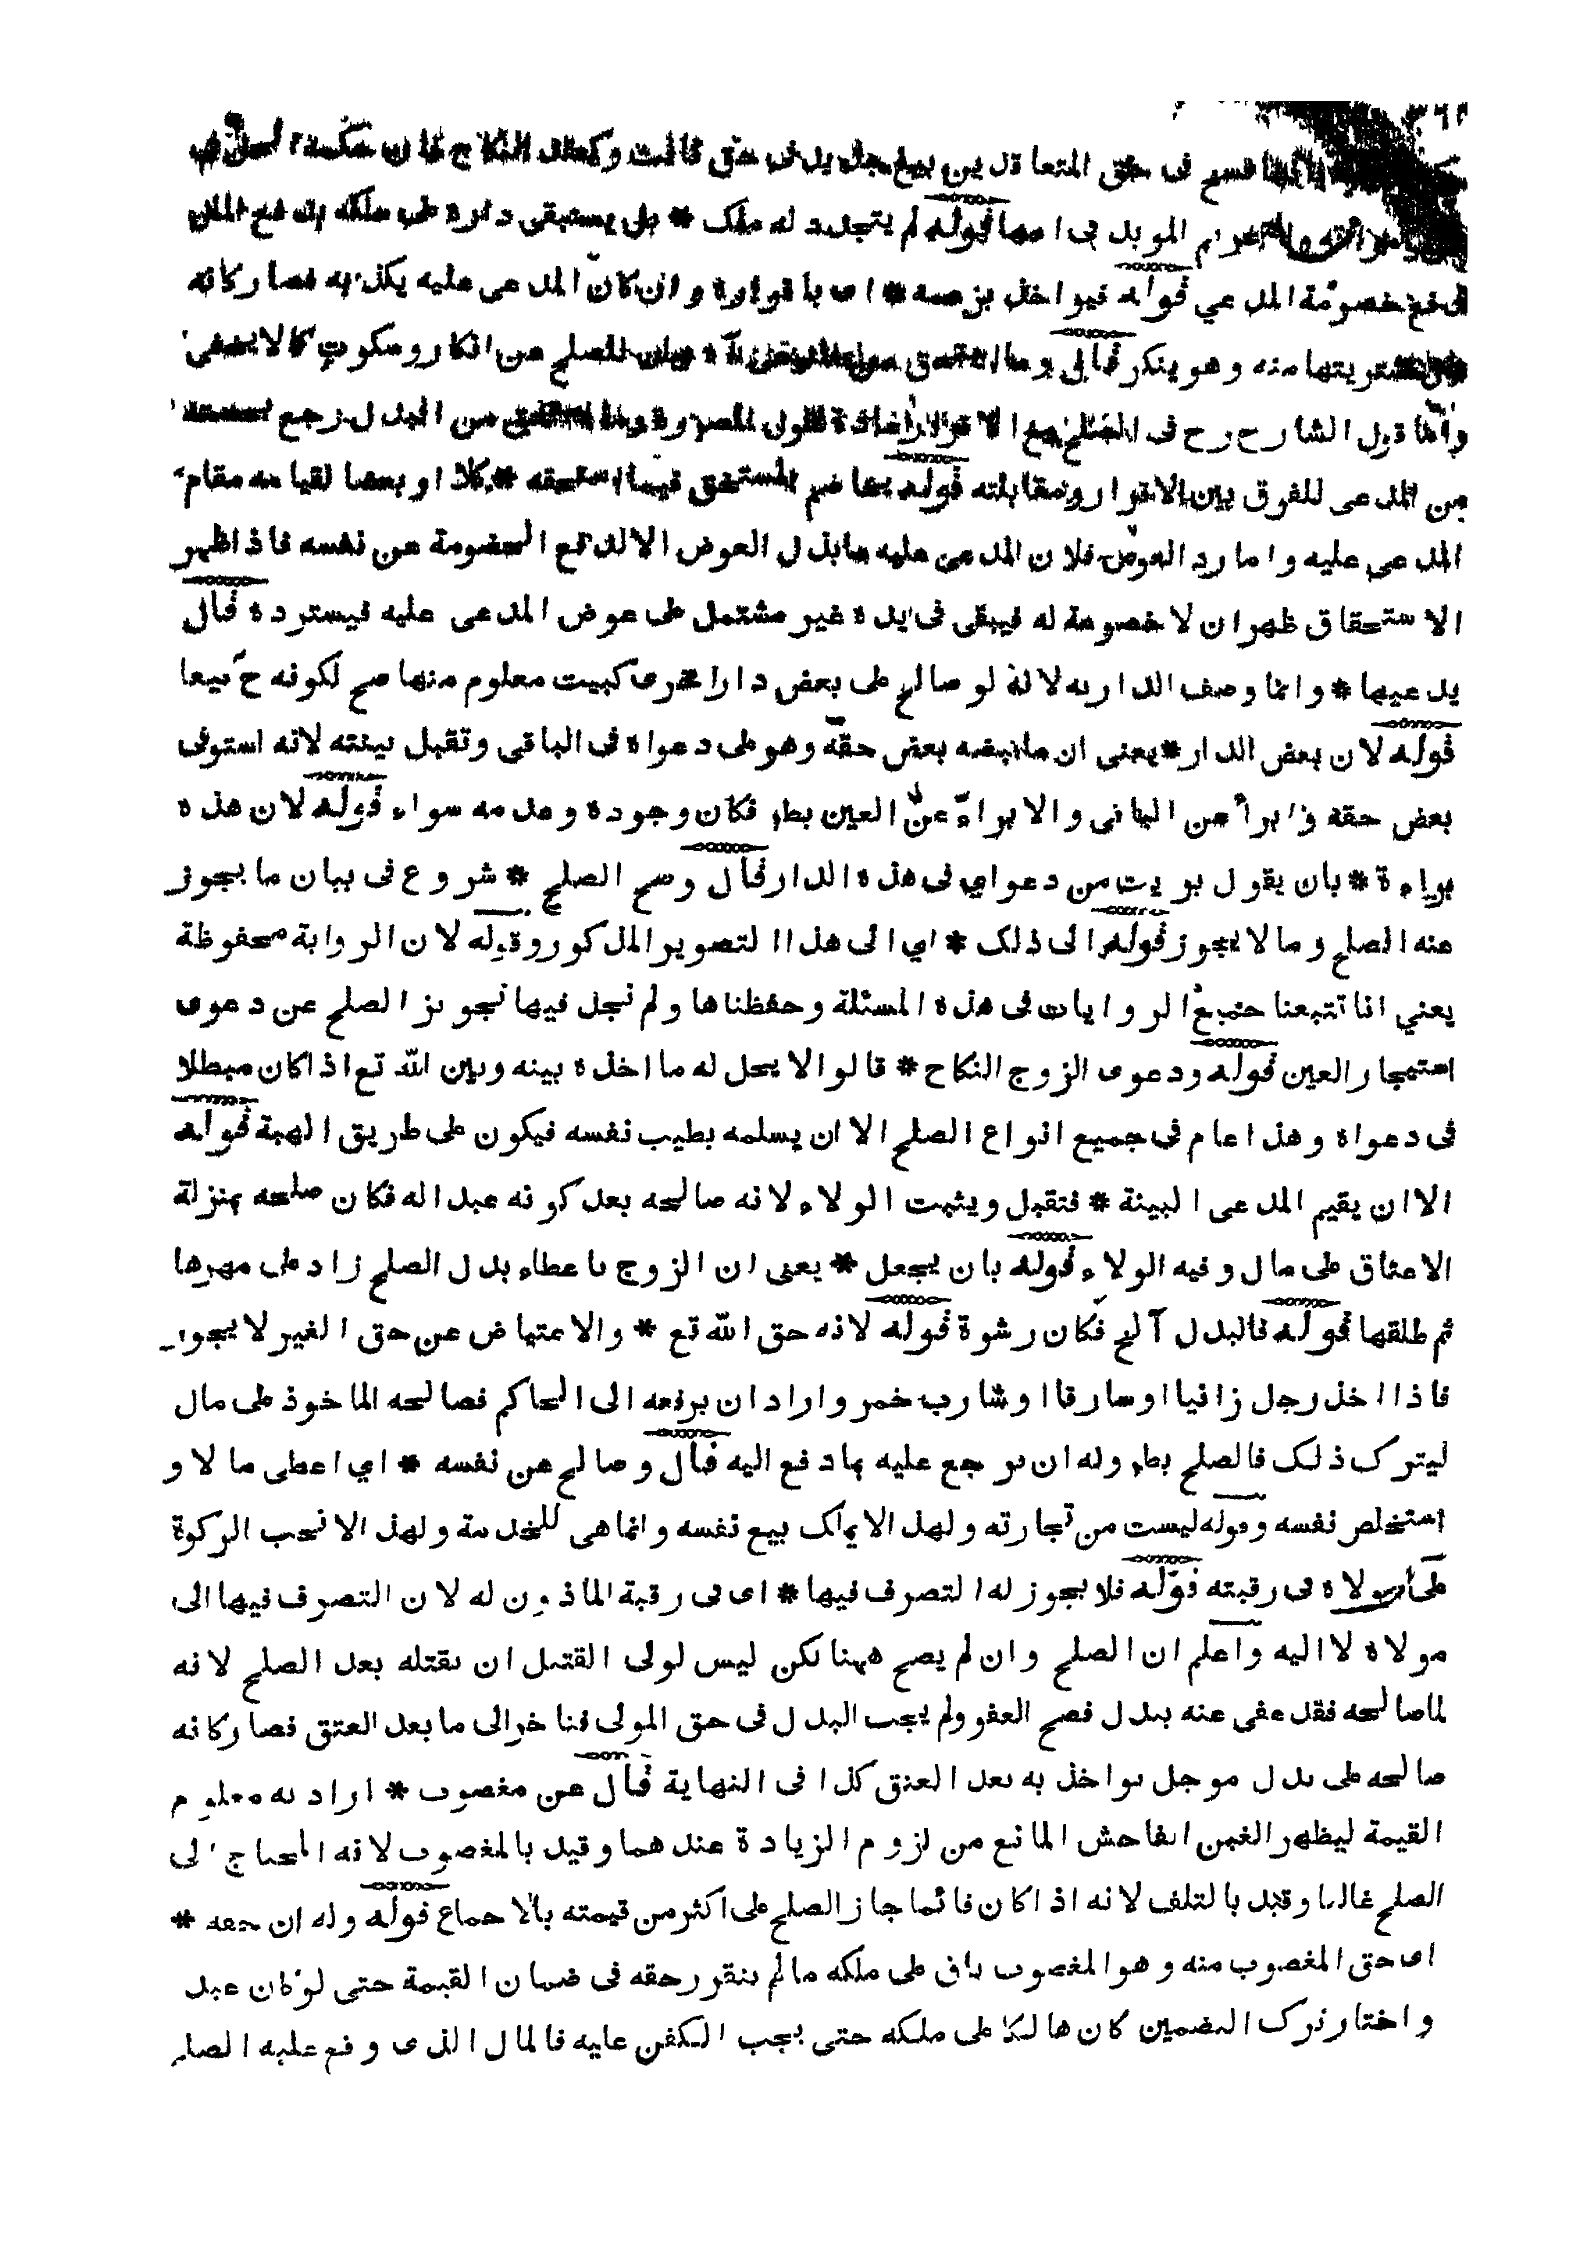 فسخ فى حق المتعاقدين بيع جديد فى حق ثالث وكعقد النكاح فان حكمه الحل فى
المؤبد فى امها قوله لم يتجدد له ملك * بل يستبقى داره على ملكه
خصومة المدعي قوله فيواخذ بزعمه * اى باقراره وان كان المدعى عليه يكذبه فصار كانه
اشتريتها منه وهو ينكر قال وما استحق من المدعى الصلح عن انكار وسكوت كالا يخفى
قول الشارح رح فى الصلح مع الاقرار من البدل رجع
من المدعى للفرق بين الاقرار ومقابلته قوله يخاصم المستحق فيما استحقه * كلا او بعضا لقيامه مقام
المدعى عليه واما رد العوض فلان المدعى عليه مابذل العوض الالدفع الخصومة عن نفسه فاذاظهر
الاستحقاق ظهران لاخصومة له فيبقى فى يده غير مشتمل على عوض المدعى عليه فيسترده قال
يدعيها * وانما وصف الدار به لانه لو صالح على بعض داراخرى كبيت معلوم منها صح لكونه ح بيعا
قوله لان بعض الدار * يعنى ان ماقبضه بعض حقه وهو على دعواه فى الباقى وتقبل بينته لانه استوفى
بعض حقه وابرأ عن الباقى والابراء عن العين بط فكان وجوده وعدمه سواء قوله لان هذه
براءة * بان يقول بريت من دعواي فى هذه الدار قال وصح الصلح * شروع فى بيان ما يجوز
عنه الصلح ومالايجوز قوله الى ذلك * اي الى هذا التصوير المذكور وقوله لان الرواية محفوظة
يعني انا تتبعنا جميع الروايات فى هذه المسئلة وحفظناها ولم نجد فيها تجويز الصلح عن دعوى
استيجار العين قوله ودعوى الزوج النكاح * قالوا لا يحل له ما اخذه بينه وبين الله تع اذاكان مبطلا
فى دعواه وهذا عام فى جميع انواع الصلح الا ان يسلمه بطيب نفسه فيكون على طريق الهبة قوله
الا ان يقيم المدعى البينة * فتقبل ويثبت الولاء لانه صالحه بعد كونه عبدا له فكان صلحه بمنزلة
الاعتاق على مال وفيه الولاء قوله بان يجعل * يعنى ان الزوج باعطاء بدل الصلح زاد على مهرها
ثم طلقها قوله فالبدل آلخ فكان رشوة قوله لانه حق الله تع * والاعتياض عن حق الغير لا يجوز
فاذا اخذ رجل زانيا اوسارقا اوشارب خمر واراد ان يرفعه الى الحاكم فصالحه الماخوذ على مال
ليترك ذلك فالصلح بط وله ان يرجع عليه بمادفع اليه قال وصالح عن نفسه * اي اعطى مالا و
استخلص نفسه وقوله ليست من تجارته ولهذا لايملك بيع نفسه وانما هى للخدمة ولهذا لاتجب الزكوة
على مولاه فى رقبته قوله فلايجوز له التصرف فيها * اى فى رقبة الماذون له لان التصرف فيها الى
مولاه لا اليه واعلم ان الصلح وان لم يصح ههنا لكن ليس لولى القتيل ان يقتله بعد الصلح لانه
لماصالحه فقد عفى عنه ببدل فصح العفو ولم يجب البدل فى حق المولى فتاخر الى ما بعد العتق فصار كانه
صالحه على بدل موجل يواخذ به بعد العتق كذا فى النهاية قال عن مغصوب * اراد به معلوم
القيمة ليظهر الغبن الفاحش المانع من لزوم الزيادة عندهما وقيد بالمغصوب لانه المحتاج الى
الصلح غالبا وقيد بالتلف لانه اذاكان قائما جاز الصلح على اكثر من قيمته بالاجماع قوله وله ان حقه *
اى حق المغصوب منه وهو المغصوب باق على ملكه مالم يتقرر حقه فى ضمان القيمة حتى لوكان عبد
واختار ترك التضمين كان هالكا على ملكه حتى يجب الكفن عليه فالمال الذى وقع عليه الصلح